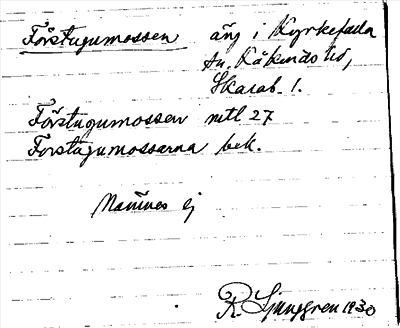 Förstugumossen äng i Kyrkefalla
sn. Kåkinds hd,
Skarab. l.
Förstugumossen mtl 27
Förstugumossarna bek.
Nämnes ej
R. Ljunggren 1930